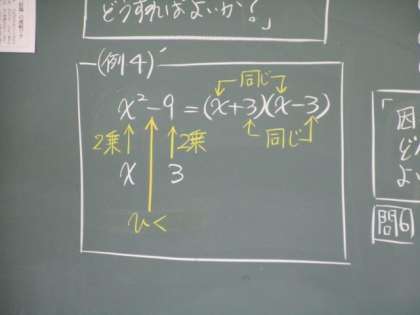 どうすればよいか?」
(例4)
同じ
x²-9=(x+3)(x-3)
2乗 2乗 同じ
x 3
ひく
「因
ど
よい
問6